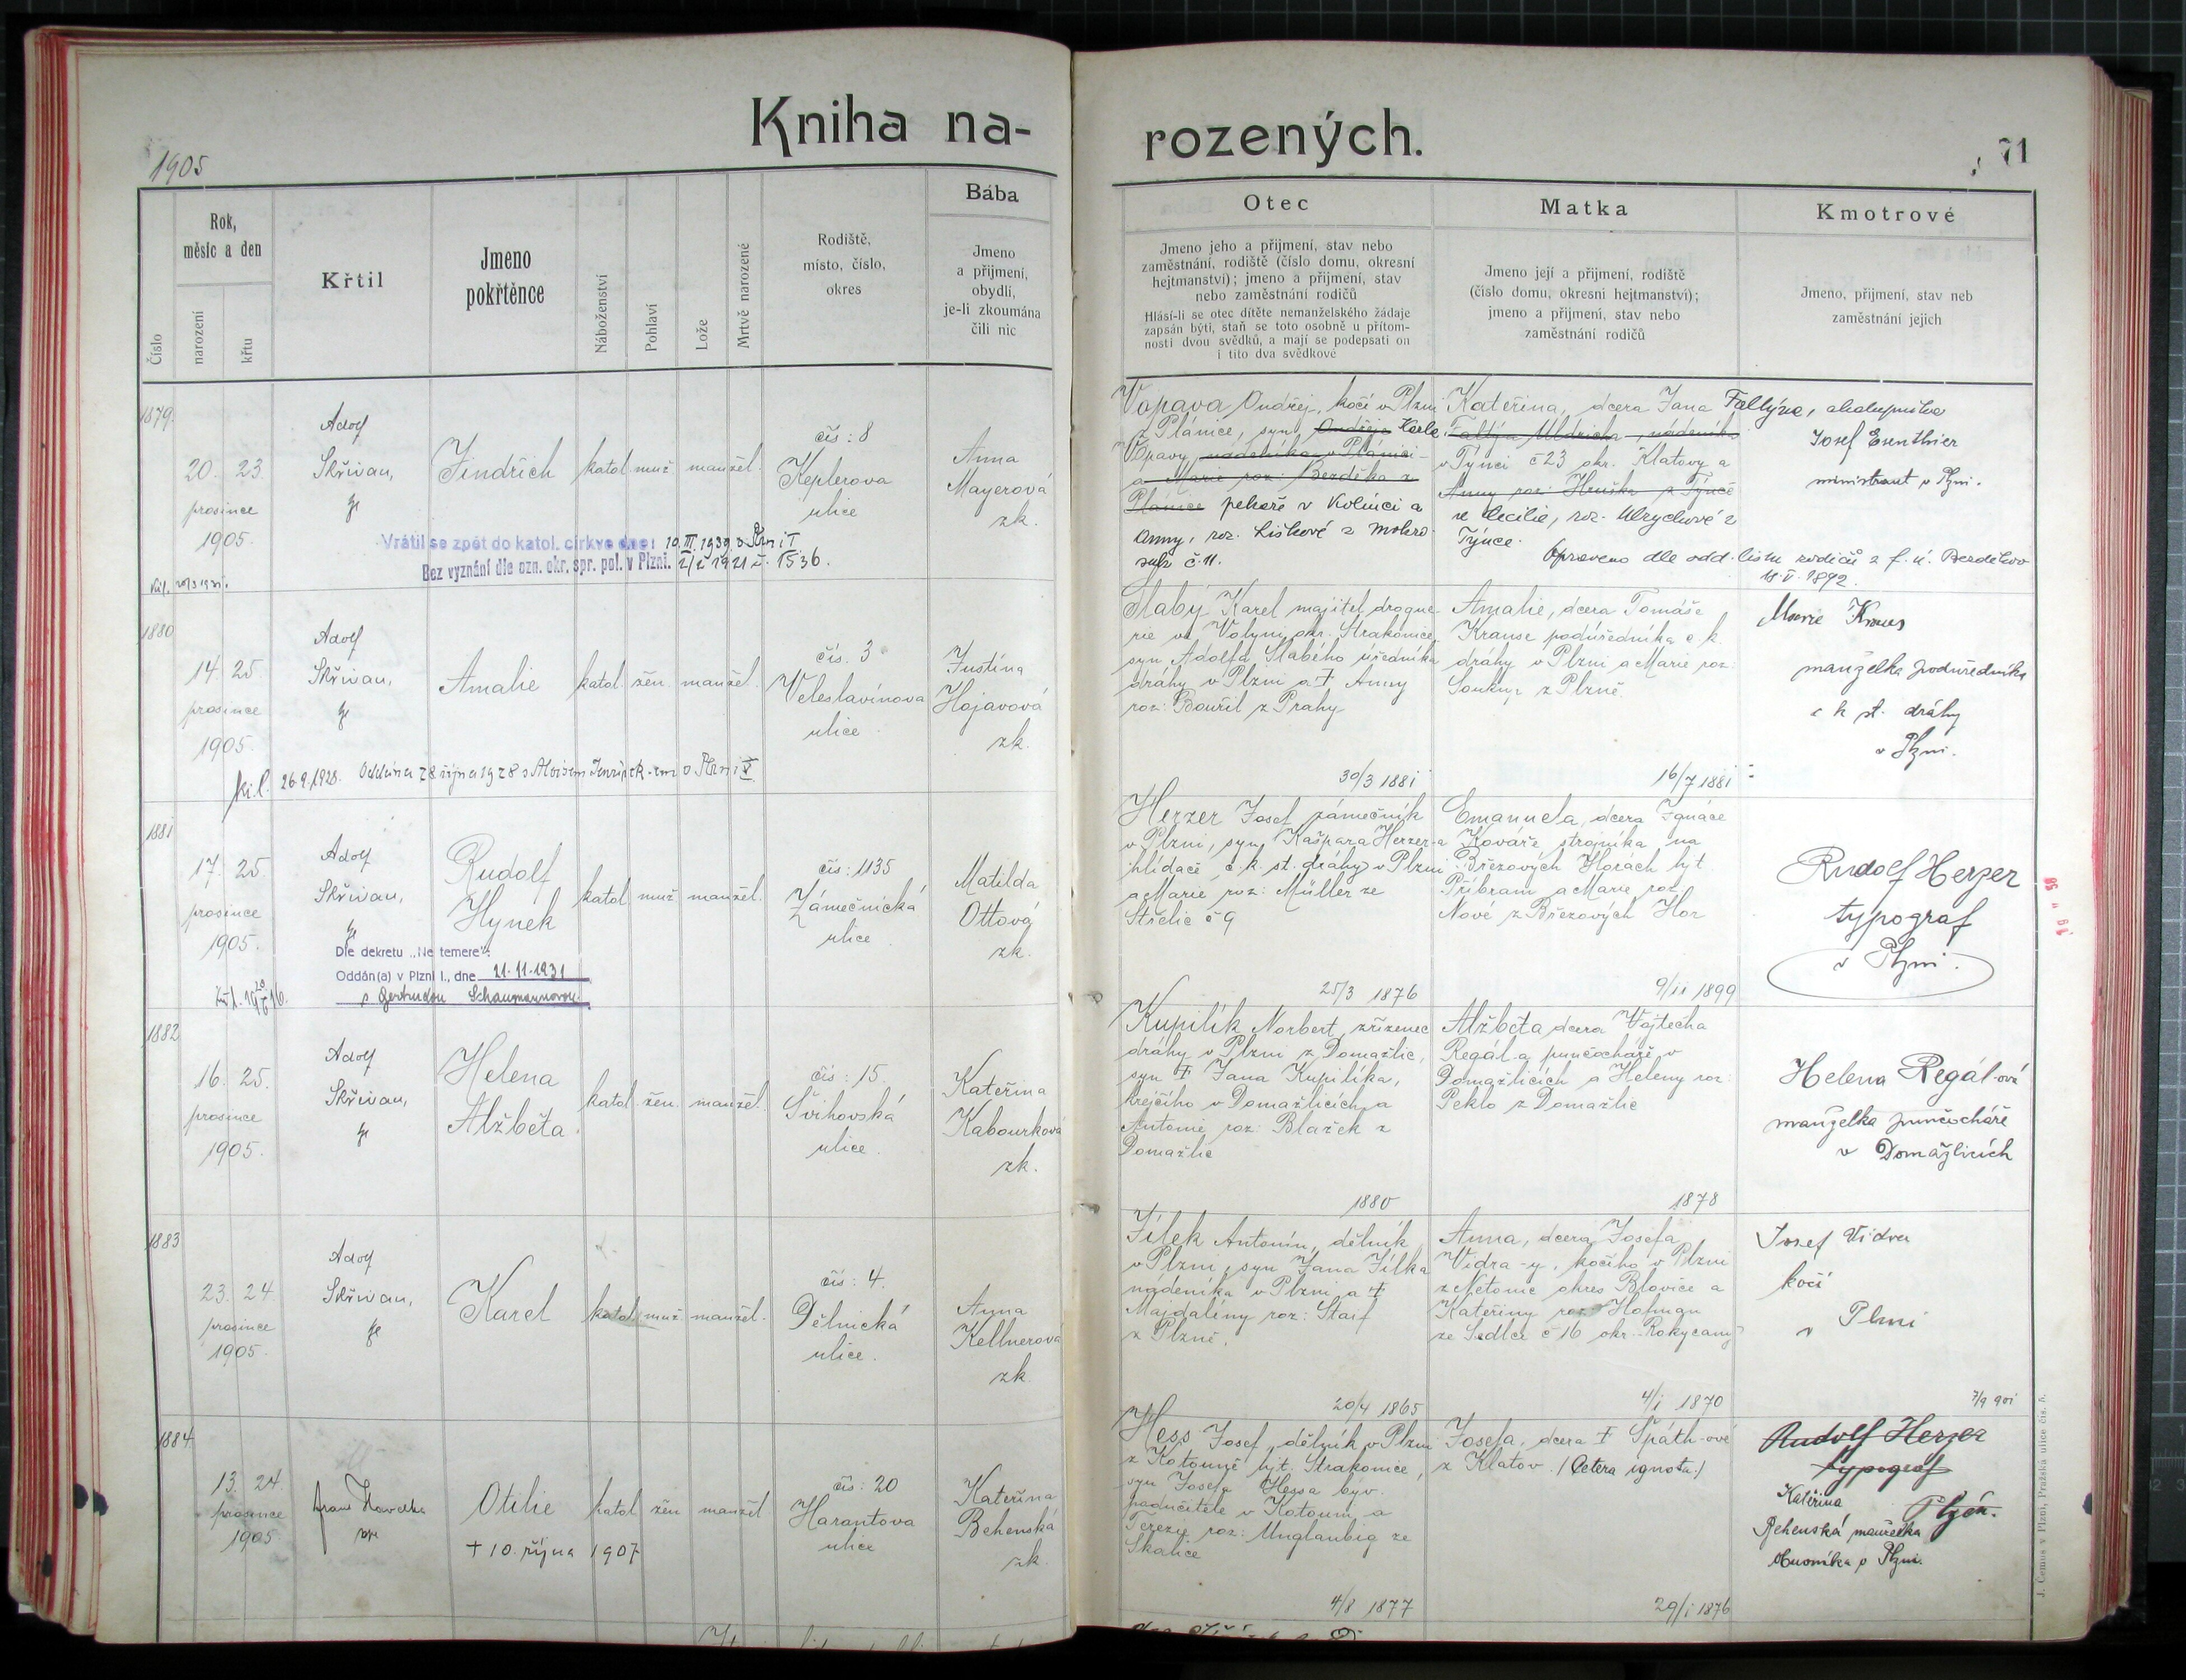 Kniha na-
rozených.
1905
71
Číslo
Rok,
měsíc a den
narození
křtu
Křtil
Jmeno
pokřtěnce
Náboženství
Pohlaví
Lože
Mrtvě narozené
Rodiště,
místo, číslo,
okres
Bába
Jmeno
a přijmení,
obydlí,
je-li zkoumána
čili nic
Otec
Jmeno jeho a přijmení, stav nebo
zaměstnání, rodiště (číslo domu, okresní
hejtmanství); jmeno a přijmení, stav
nebo zaměstnání rodičů
Hlásí-li se otec dítěte nemanželského žádaje
zapsán býti, staň se toto osobně u přítom-
nosti dvou svědků, a mají se podepsati on
i tito dva svědkové
Matka
Jmeno její a přijmení, rodiště
(číslo domu, okresní hejtmanství);
jmeno a přijmení, stav nebo
zaměstnání rodičů
Kmotrové
Jmeno, přijmení, stav neb
zaměstnání jejich
1879.
20. 23
prosince
1905.
Adolf
Skřivan,
Jindřich
katol. muž manžel.
čís: 8
Keplerova
ulice
Anna
Mayerová
zk.
Vrátil se zpět do katol. církve dne: 10. III. 1939 v Plzni I
Bez vyznání dle ozn. okr. spr. pol. v Plzni. 2/2 1921 č. 1536.
Vopava Ondřej, kočí v Plzni
z Plánice, syn Ondřeje Karla
Vopavy, nádeníka v Plánici
a Marie roz: Bezděka z
Plánice pekaře v Kolinci a
Anny, roz. Liškové z Mokro-
suk č. 11.
Kateřina, dcera Jana Faltýna, chalupníka
Faltýn Uldricha, nádeníka
v Týnci č 23 okr. Klatovy a
Anny roz: Hruška z Týnce
se Cecilie, roz. Ulrychové z
Týnce.
Opraveno dle odd. listu rodičů z f. ú. Bezděkov
18. V. 1892.
Josef Esenthier
ministrant v Plzni.
1880
14. 25
prosince
1905.
Adolf
Skřivan,
Amalie
katol. žen. manžel.
čís. 3
Veleslavínova
ulice
Justina
Hojavová
zk.
26.9.1928. Oddána 28 října 1928 s Aloisem
Slabý Karel majitel drogue-
rie ve Volyni okr. Strakonice,
syn Adolfa Slabého úředníka
dráhy v Plzni a † Anny
roz: Bouřil z Prahy
30/3 1881
Amalie, dcera Tomáše
Krause podúředníka c. k.
dráhy v Plzni a Marie roz:
Soukup z Plzně.
16/7 1881
Marie Kraus
manželka podúředníka
c k st. dráhy
v Plzni.
1881
17. 25.
prosince
1905.
Adolf
Skřivan,
Rudolf
Hynek
katol. muž manžel.
čís: 1135
Zámečnická
ulice
Matilda
Ottová
zk.
Dle dekretu „Ne temere":
Oddán(a) v Plzni I., dne 21.11.1931
s Gertrudou Schaumannovou
Herzer Josef zámečník
v Plzni, syn Kašpara Herzer-a
hlídače c. k. st. dráhy v Plzni
a Marie roz: Müller ze
Střelic č 9
25/3 1876
Emanuela, dcera Ignáce
Kováře, strojníka na
Březových Horách hjt
Příbram a Marie roz.
Nové z Březových Hor
9/11 1899
Rudolf Herzer
typograf
v Plzni.
1882
16. 25.
prosince
1905.
Adolf
Skřivan,
Helena
Alžběta.
katol. žen. manžel.
čís: 15.
Švihovská
ulice.
Kateřina
Kabourková
zk.
Kupilík Norbert, zřízenec
dráhy v Plzni z Domažlic,
syn † Jana Kupilíka,
krejčího v Domažlicích a
Antonie roz: Blažek z
Domažlic
1880
Alžběta dcera Vojtěcha
Regál-a punčocháře v
Domažlicích a Heleny roz:
Peklo z Domažlic
1878
Helena Regál-ová
manželka punčocháře
v Domažlicích
1883
23. 24
prosince
1905.
Adolf
Skřivan,
Karel
katol. muž. manžel.
čís: 4.
Dělnická
ulice.
Anna
Kellnerová
zk.
Jílek Antonín, dělník
v Plzni, syn Jana Jílka
nádeníka v Plzni a †
Majdalény roz: Staif
z Plzně.
20/4 1865
Anna, dcera Josefa
Vidra-y, kočího v Plzni
z Netonic okres Blovice a
Kateřiny roz. Hofman
ze Sedlce č 16 okr. Rokycany
4/1 1870
Josef Vidra
kočí
v Plzni
1884
13. 24.
prosince
1905.
Otilie
katol žen manžel
čís: 20
Harantova
ulice
Kateřina
Behenská
zk.
† 10. října 1907
Hess Josef, dělník v Plzni
z Katouně hjt. Strakonice,
syn Josefa Hessa býv.
podučitele v Katouni a
Terezie roz: Unglaubig ze
Skalice
4/8 1877
Josefa, dcera † Späth-ové
z Klatov. /Cetera ignota:/
29/1 1876
7/9 901
Rudolf Herzer
typograf
Plzeň.
Kateřina
Behenská manželka
v Plzni.
J. Čomus v Plzni, Pražská ulice čís. 5.